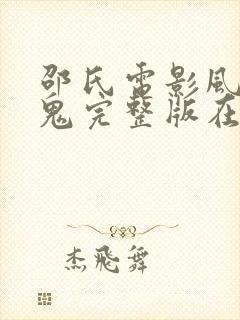 邵氏电影风
鬼完整版在
杰飛舞